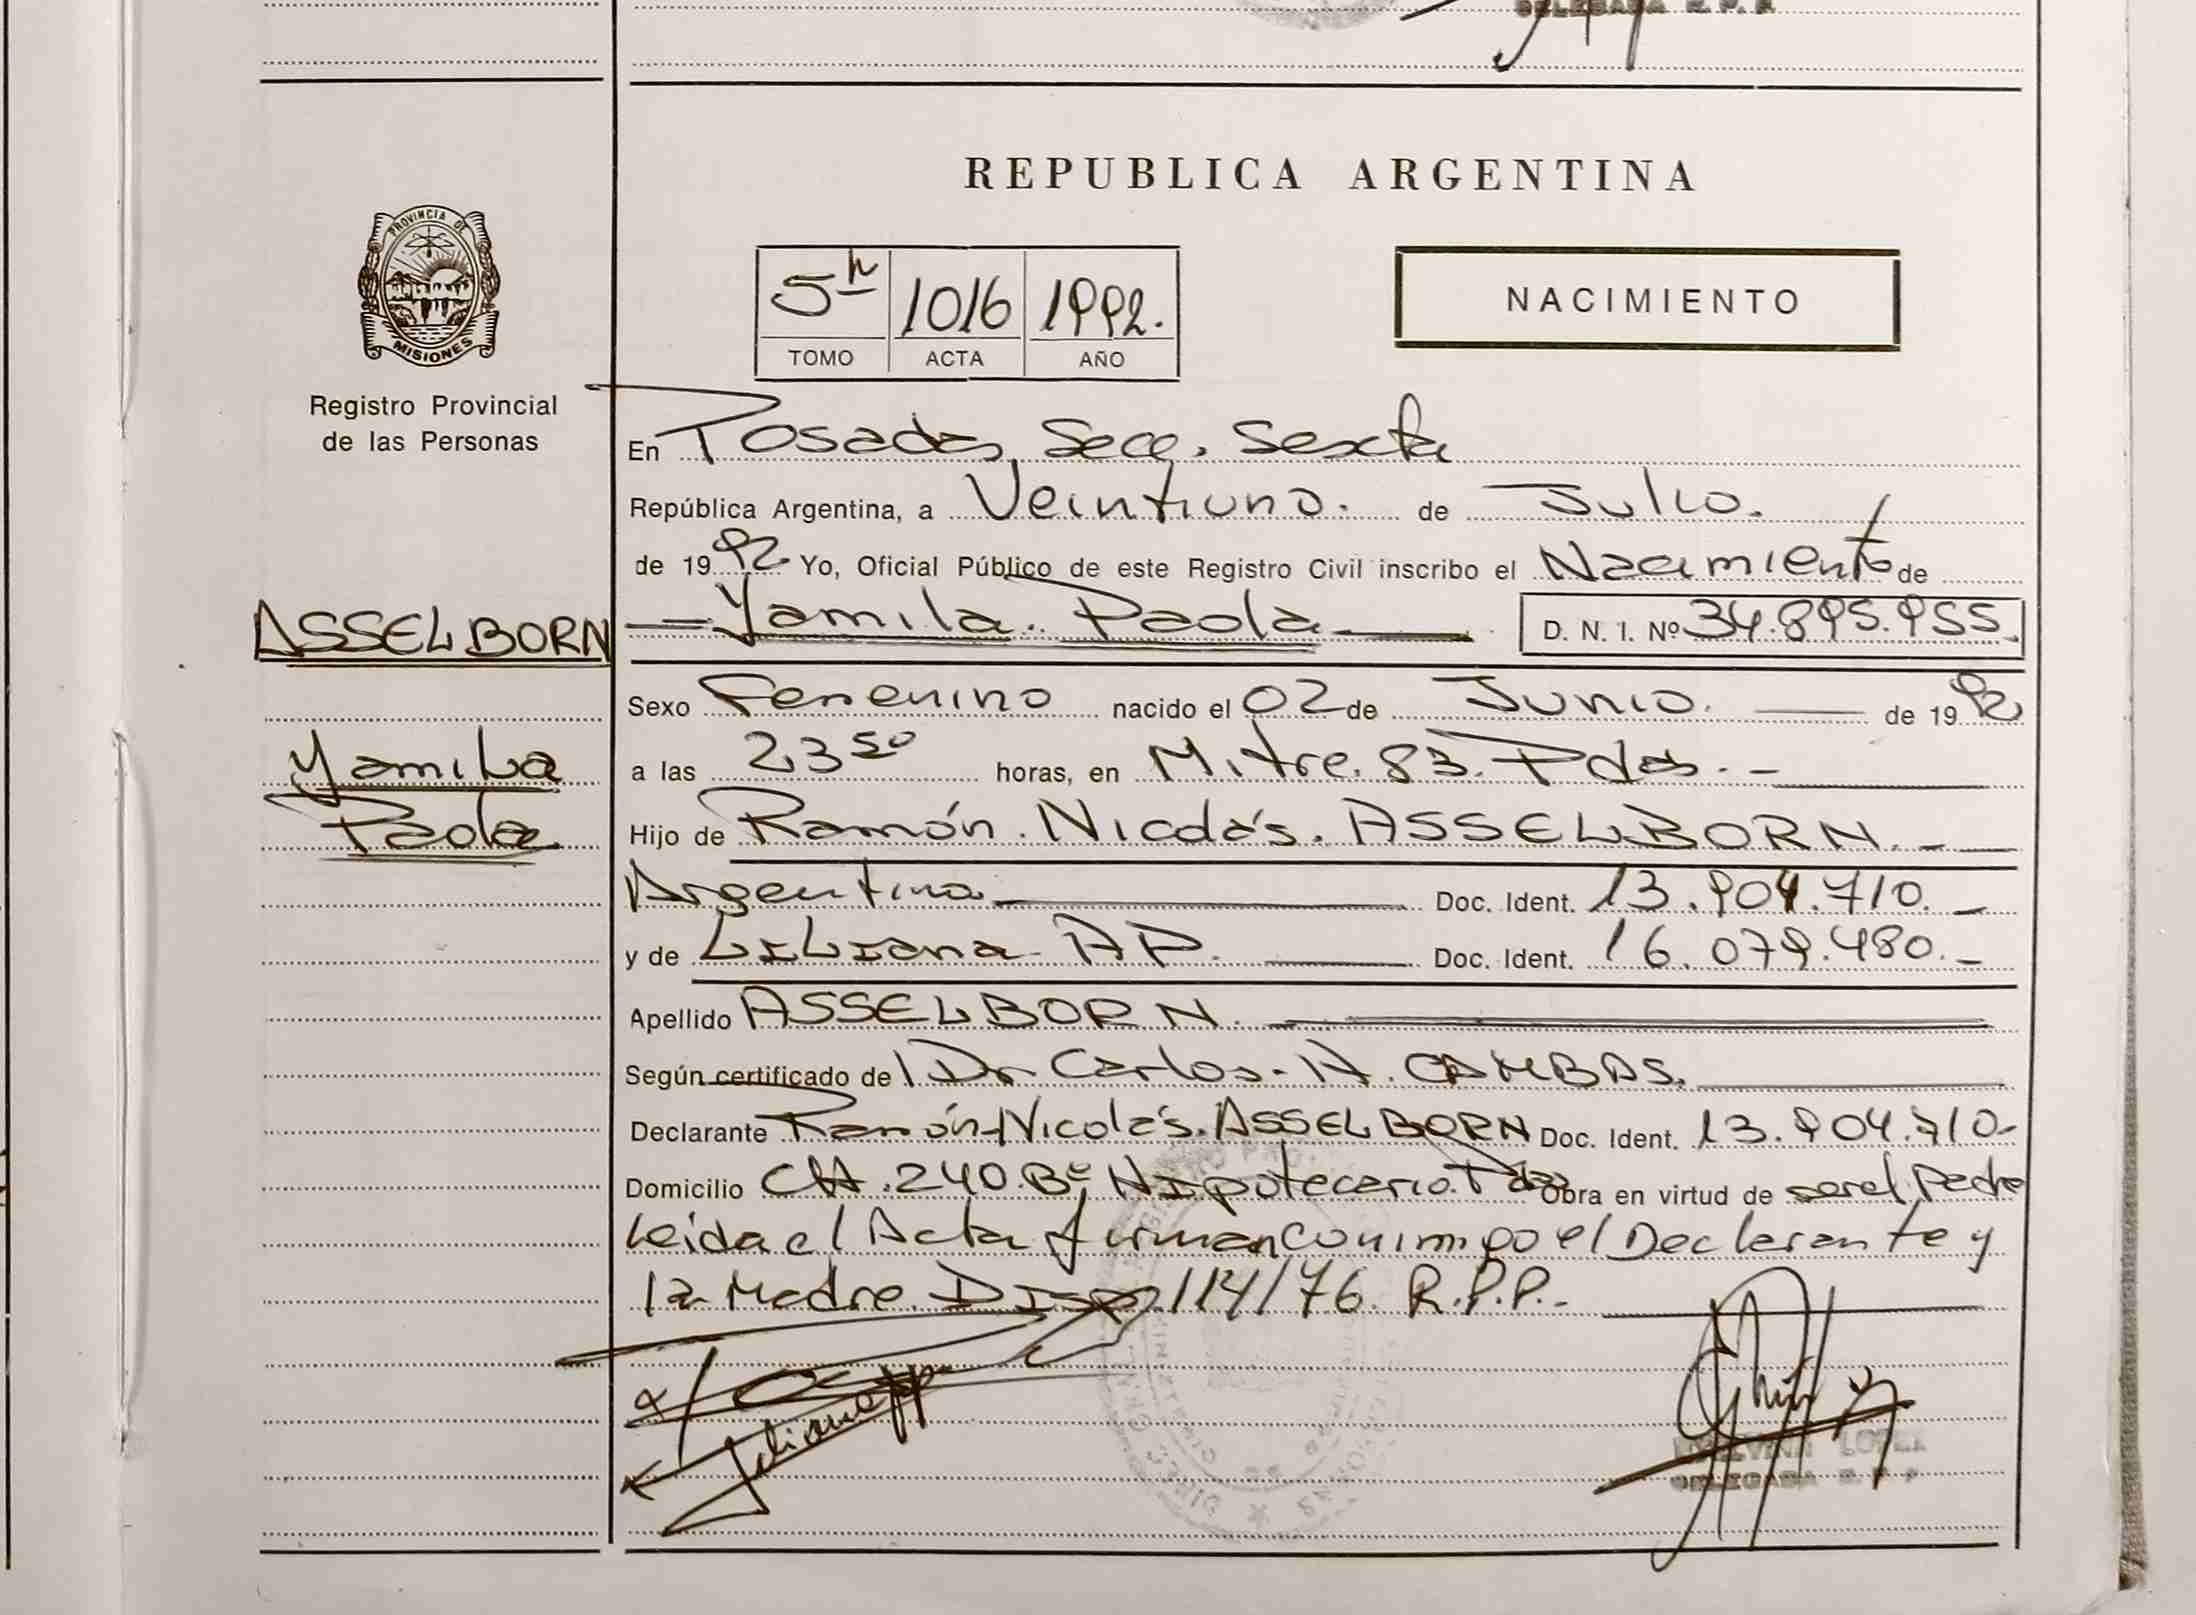 DELEGADA R. P. P.
REPUBLICA ARGENTINA
PROVINCIA DE
MISIONES
Registro Provincial
de las Personas
5h 1016 1992.
TOMO ACTA AÑO
NACIMIENTO
En Posadas, Secc. Sexta
República Argentina, a Veintiuno. de Julio.
de 1992 Yo, Oficial Público de este Registro Civil inscribo el Nacimiento de
ASSELBORN
Yamila Paola
— Yamila. Paola — D. N. I. Nº 34.895.955.
Sexo Femenino nacido el 02 de Junio. — de 1992
a las 23 50 horas, en Mitre. 83. Pdas. -
Hijo de Ramón. Nicolás. ASSELBORN. -
Argentina — Doc. Ident. 13.904.710. -
y de Liliana AP. — Doc. Ident. 16.079.480. -
Apellido ASSELBORN. —
Según certificado de Dr Carlos. A. CAMBAS. —
Declarante Ramón Nicolás. ASSELBORN Doc. Ident. 13.904.710-
Domicilio CH. 240. Bº Hipotecario. Pdas Obra en virtud de ser el Padre
Leida el Acta firman conmigo el Declarante y
la Madre. Disp. 114/76. R.P.P. -
Liliana App
LOPEZ
DELEGADA R. P. P.